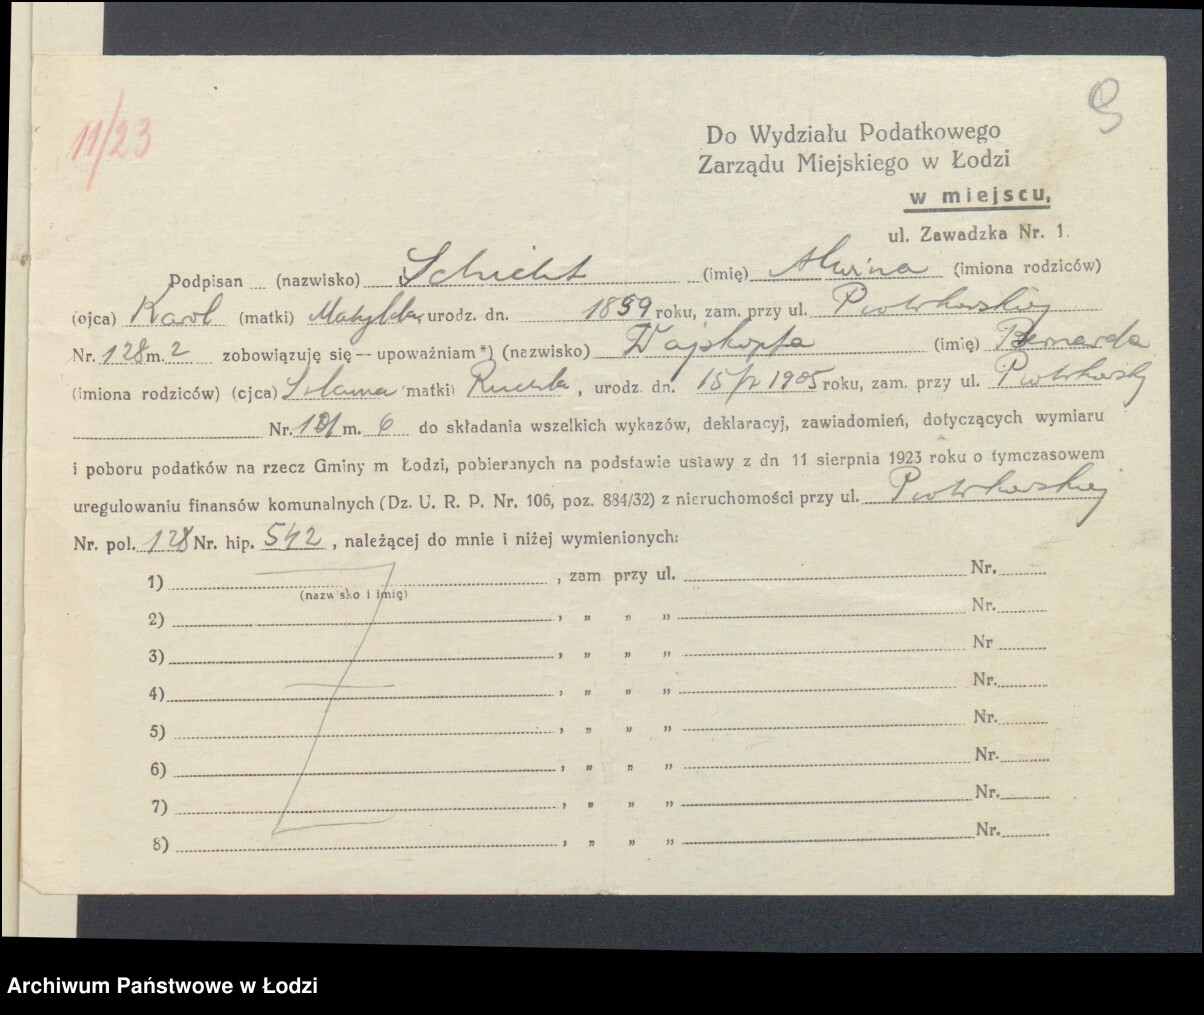 11/23
9
Do Wydziału Podatkowego
Zarządu Miejskiego w Łodzi
w miejscu,
ul. Zawadzka Nr. 1.
Podpisan (nazwisko) Schicht (imię) Alwina (imiona rodziców)
(ojca) Karol (matki) Matylda urodz. dn. 1859 roku, zam. przy ul. Piotrkowskiej
Nr. 128 m. 2 zobowiązuję się — upoważniam *) (nazwisko) Wajskopfa (imię) Bernarda
(imiona rodziców) (ojca) Szlama (matki) Ruchla, urodz. dn. 1905 roku, zam. przy ul. Piotrkowskiej
Nr. m. 6 do składania wszelkich wykazów, deklaracyj, zawiadomień, dotyczących wymiaru
i poboru podatków na rzecz Gminy m Łodzi, pobieranych na podstawie ustawy z dn 11 sierpnia 1923 roku o tymczasowem
uregulowaniu finansów komunalnych (Dz. U. R. P. Nr. 106, poz. 884/32) z nieruchomości przy ul. Piotrkowskiej
Nr. pol. 128 Nr. hip. 542, należącej do mnie i niżej wymienionych:
1) , zam przy ul. Nr.
(nazwisko i imię)
2) , „ „ „ Nr.
3) , „ „ „ Nr
4) , „ „ „ Nr.
5) , „ „ „ Nr.
6) , „ „ „ Nr.
7) , „ „ „ Nr.
8) , „ „ „ Nr.
Archiwum Państwowe w Łodzi